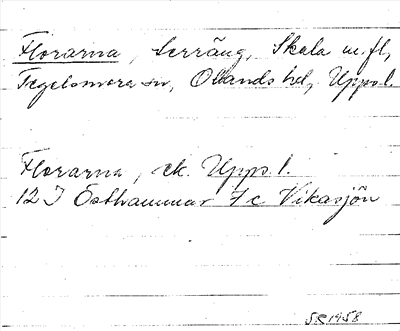 Florarna, terräng, Skala m.fl,
Tegelsmora sn, Olands hd, Uppsl.
Florarna, ek. Upps.l.
12 I Östhammar 7 c Vikasjön
SR 1958